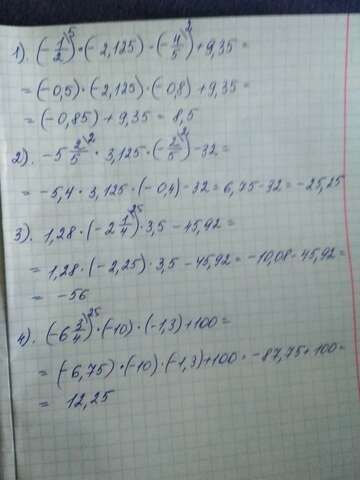 1). (-1/2)⁵ · (-2,125) · (-4/5)² + 9,35 =
= (-0,5) · (-2,125) · (-0,8) + 9,35 =
= (-0,85) + 9,35 = 8,5
2). -5 2/5² · 3,125 · (-2/5)² - 32 =
= -5,4 · 3,125 · (-0,4) - 32 = 6,75 - 32 = -25,25
3). 1,28 · (-2 1/4)²⁵ · 3,5 - 45,92 =
= 1,28 · (-2,25) · 3,5 - 45,92 = -10,08 - 45,92 =
= -56
4). (-6 3/4)²⁵ · (-10) · (-1,3) + 100 =
= (-6,75) · (-10) · (-1,3) + 100 = -87,75 + 100 =
= 12,25